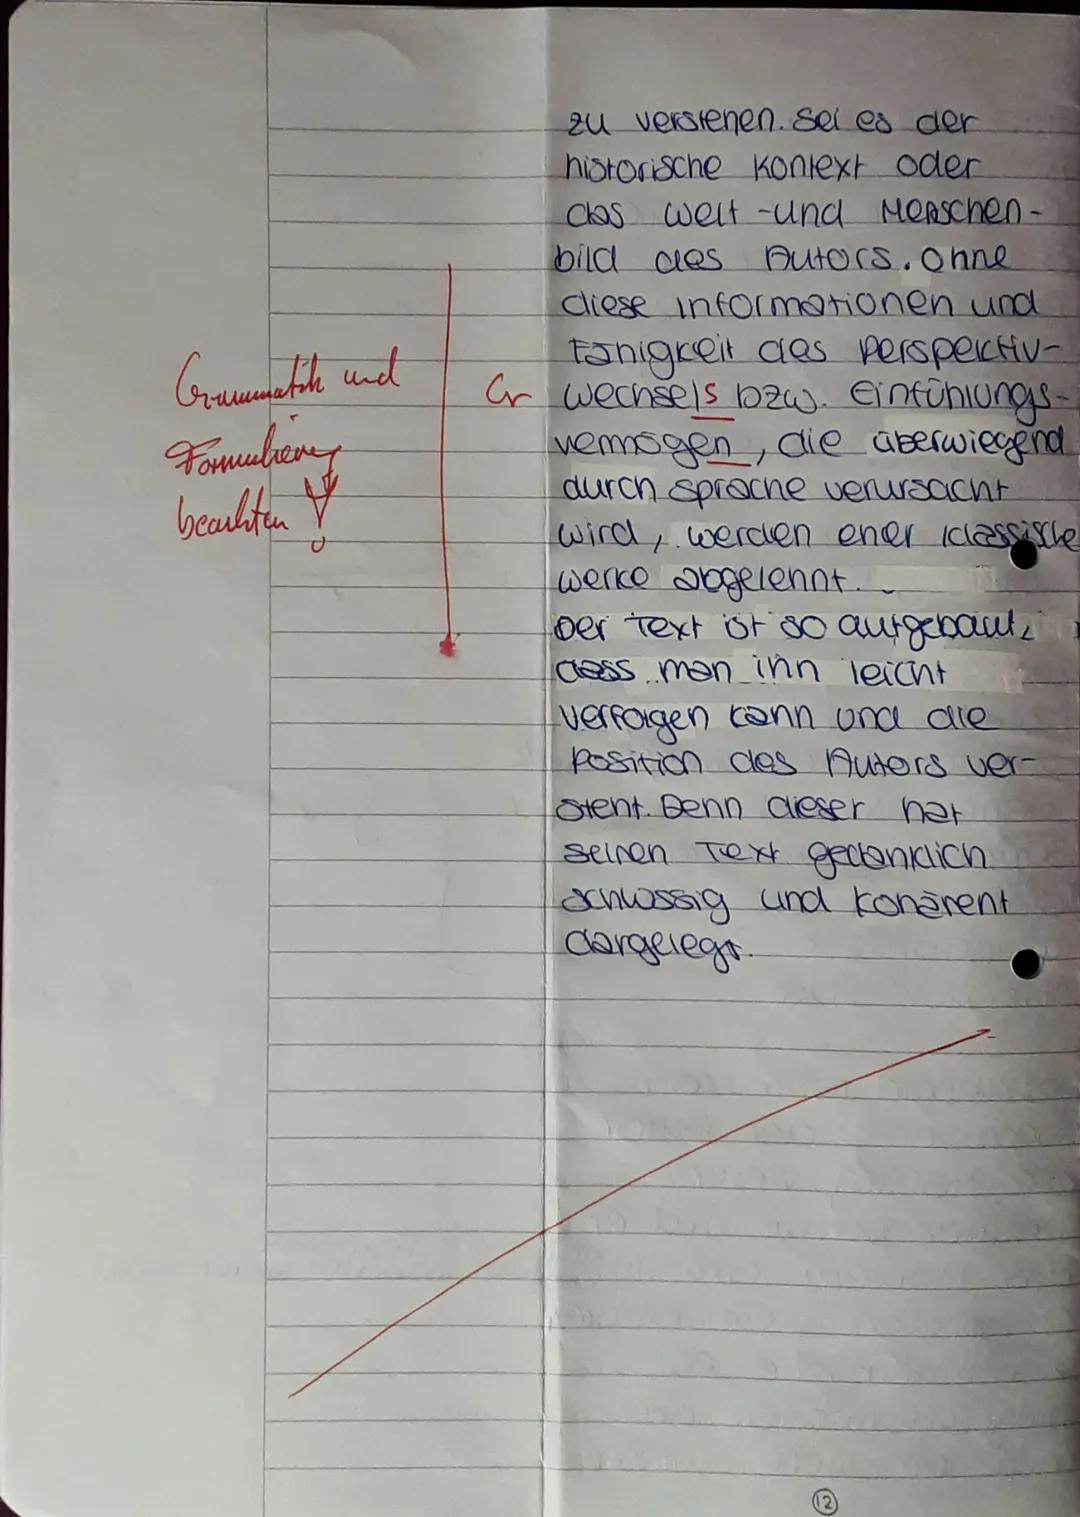 zu verstehen. Sei es der
historische Kontext oder
das Welt-und Menschen-
bild des Autors. Ohne
diese Informationen und
Fähigkeit des Perspektiv-
Grammatik und
Gr wechsels bzw. Einfühlungs-
Formulierung
vermögen, die überwiegend
beachten!
durch Sprache verursacht
wird, werden eher klassische
Werke abgelehnt.
Der Text ist so aufgebaut,
dass man ihn leicht
verfolgen kann und die
Position des Autors ver-
steht. Denn dieser hat
seinen Text gedanklich
schlüssig und kohärent
dargelegt.
12